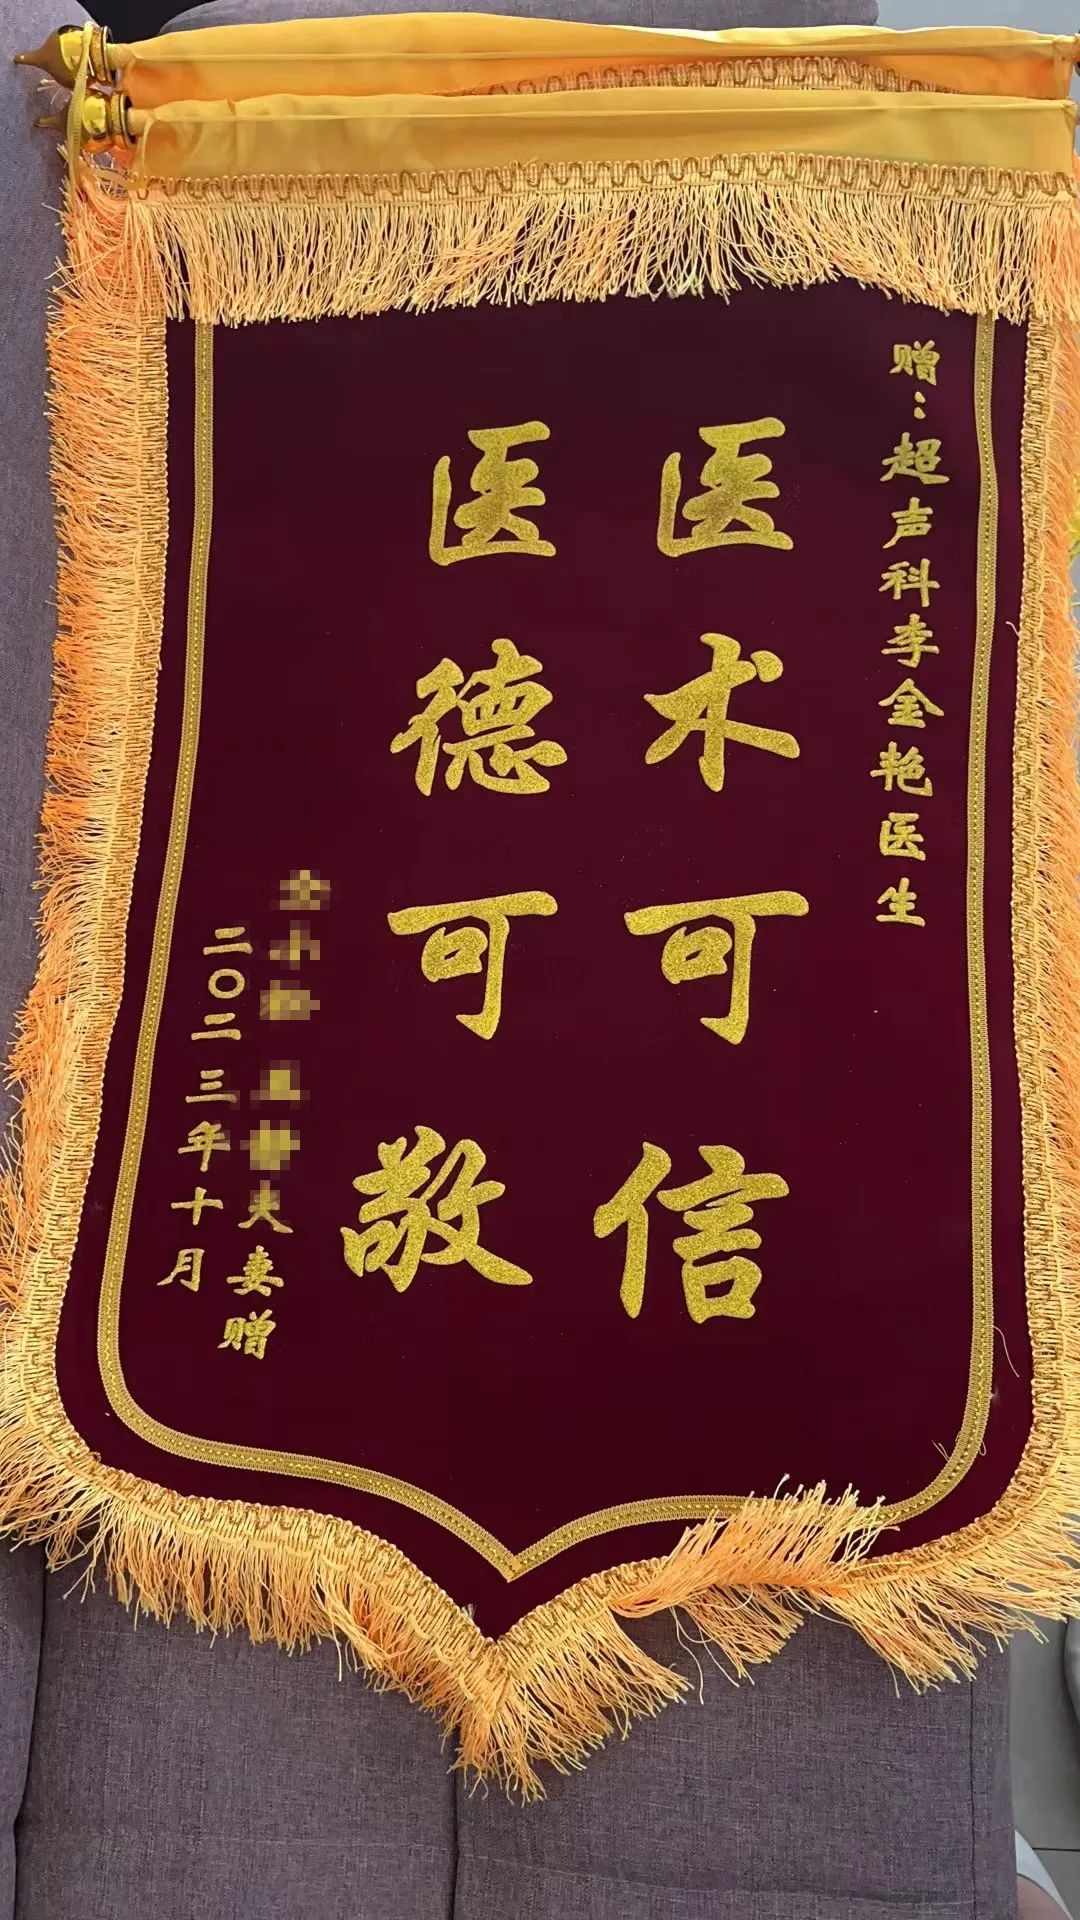 赠：超声科李金艳医生
医术可信
医德可敬
夫妻赠
二〇二三年十月